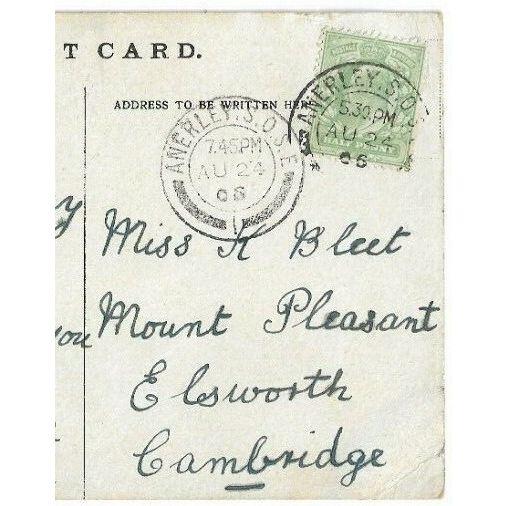 T CARD.
ADDRESS TO BE WRITTEN HERE
ANERLEY.S.O
5.30PM
AU 24
06
ANERLEY.S.O S.E
7.45PM
AU 24
06
1
y
Miss K Bleet
you Mount Pleasant
Elsworth
Cambridge